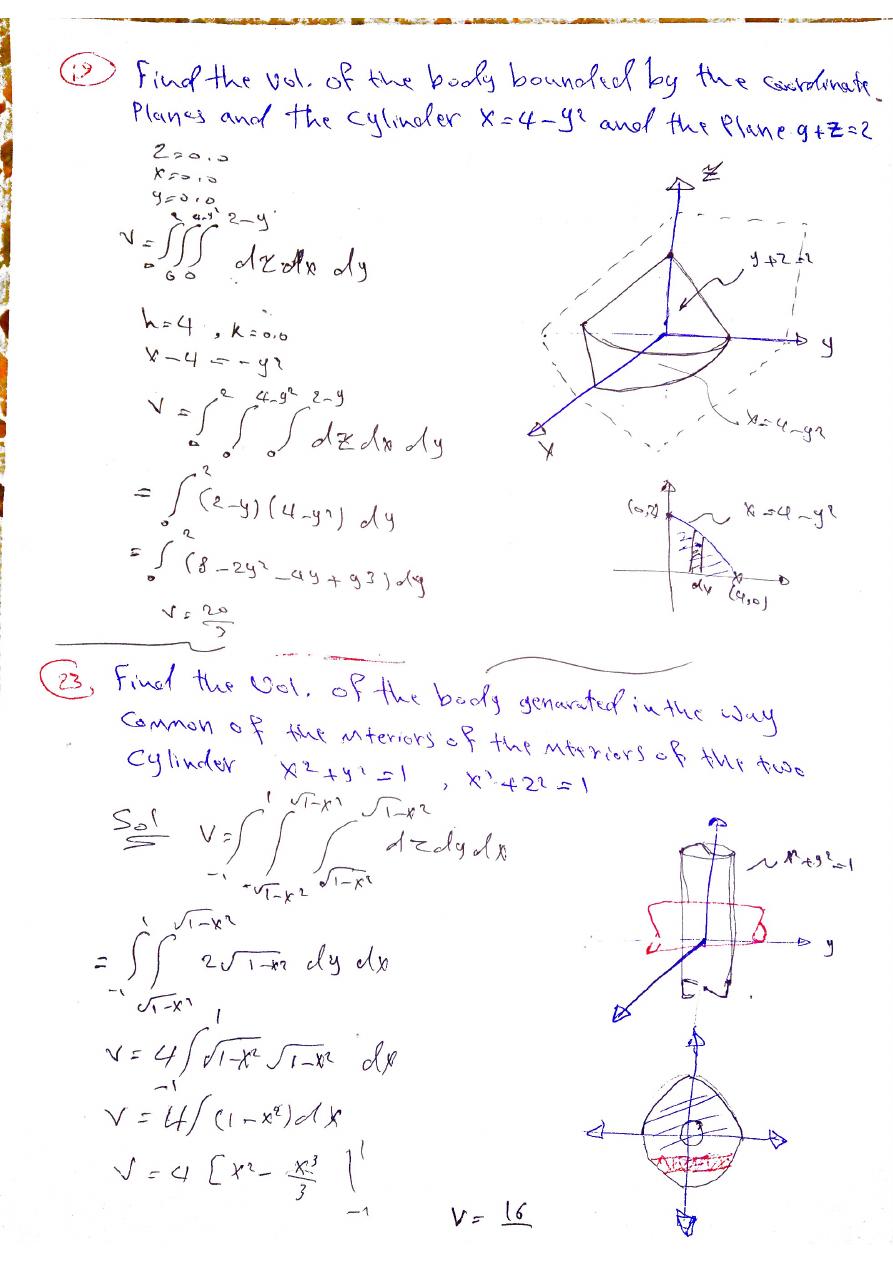 19 Find the vol. of the body bounded by the coordinate
Planes and the cylinder x = 4 - y² and the Plane y+z=2
Z=0.0
x=0.0
y=0.0
V = ∫₀² ∫₀^(4-y²) ∫₀^(2-y) dz dx dy
h=4 , k=0.0
x-4 = -y²
V = ∫₀² ∫₀^(4-y²) ∫₀^(2-y) dz dx dy
= ∫₀² (2-y)(4-y²) dy
= ∫₀² (8-2y²-4y+y3) dy
V = 20/3
Z
y+z=2
y
x=4-y²
x
(0,2)
x=4-y²
(4,0)
23, Find the Vol. of the body genarated in the way
Common of the nteriors of the nteriors of the two
Cylinder x²+y²=1 , x²+z²=1
Sol V = ∫₋₁¹ ∫_(-√1-x²)^(√1-x²) ∫_(√1-x²)^(√1-x²) dz dy dx
= ∫₋₁¹ ∫_(√1-x²)^(√1-x²) 2√1-x² dy dx
V = 4 ∫₋₁¹ √1-x² √1-x² dx
V = 4 ∫ (1-x²) dx
V = 4 [x² - x³/3 |₋₁¹
V = 16
x²+y²=1
y